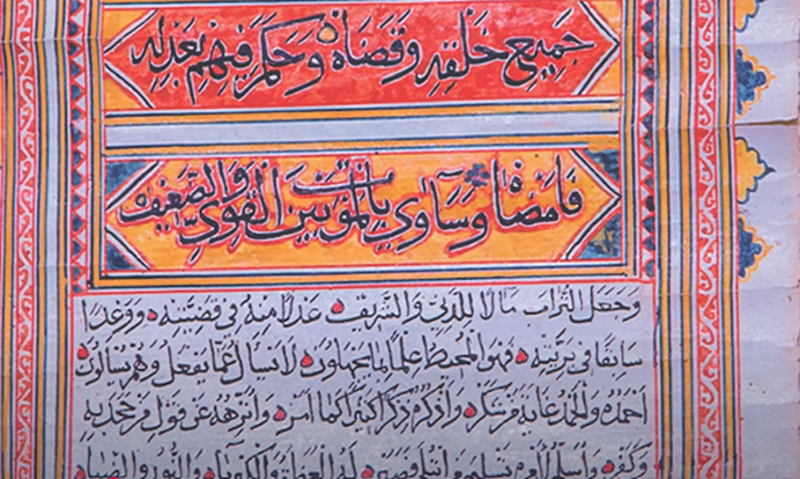 جميع خلقه وقضاه وحكم فيهم بعدله
فامضاه وساوى بالموت بين القوي والضعيف
وجعل التراب مآلا للدني والشريف عدلا منه في قضيته ووعدا
سابقا في بريته فهو المحيط علما بما يجهلون لا يسأل عما يفعل وهم يسألون
احمده والحمد غاية من شكره واذكره ذكرا كثيرا كما امر وانزهه عن قول من جحد به
وكفر وأسلم لأمره تسليم له العظمة والكبرياء والنور والضياء